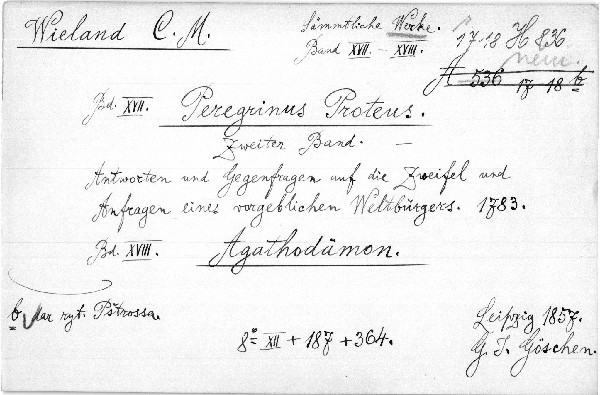 Wieland C. M.
Sämmtliche Werke.
Band XVII. – XVIII.
17-18 H 836
neu.
A 536 17-18 b
Bd. XVII. Peregrinus Proteus.
Zweiter Band. —
Antworten und Gegenfragen auf die Zweifel und
Anfragen eines vorgeblichen Weltbürgers. 1783.
Bd. XVIII. Agathodämon.
b dar ryt. Pštrossa.
8° XII + 187 + 364.
Leipzig 1857.
G. J. Göschen.